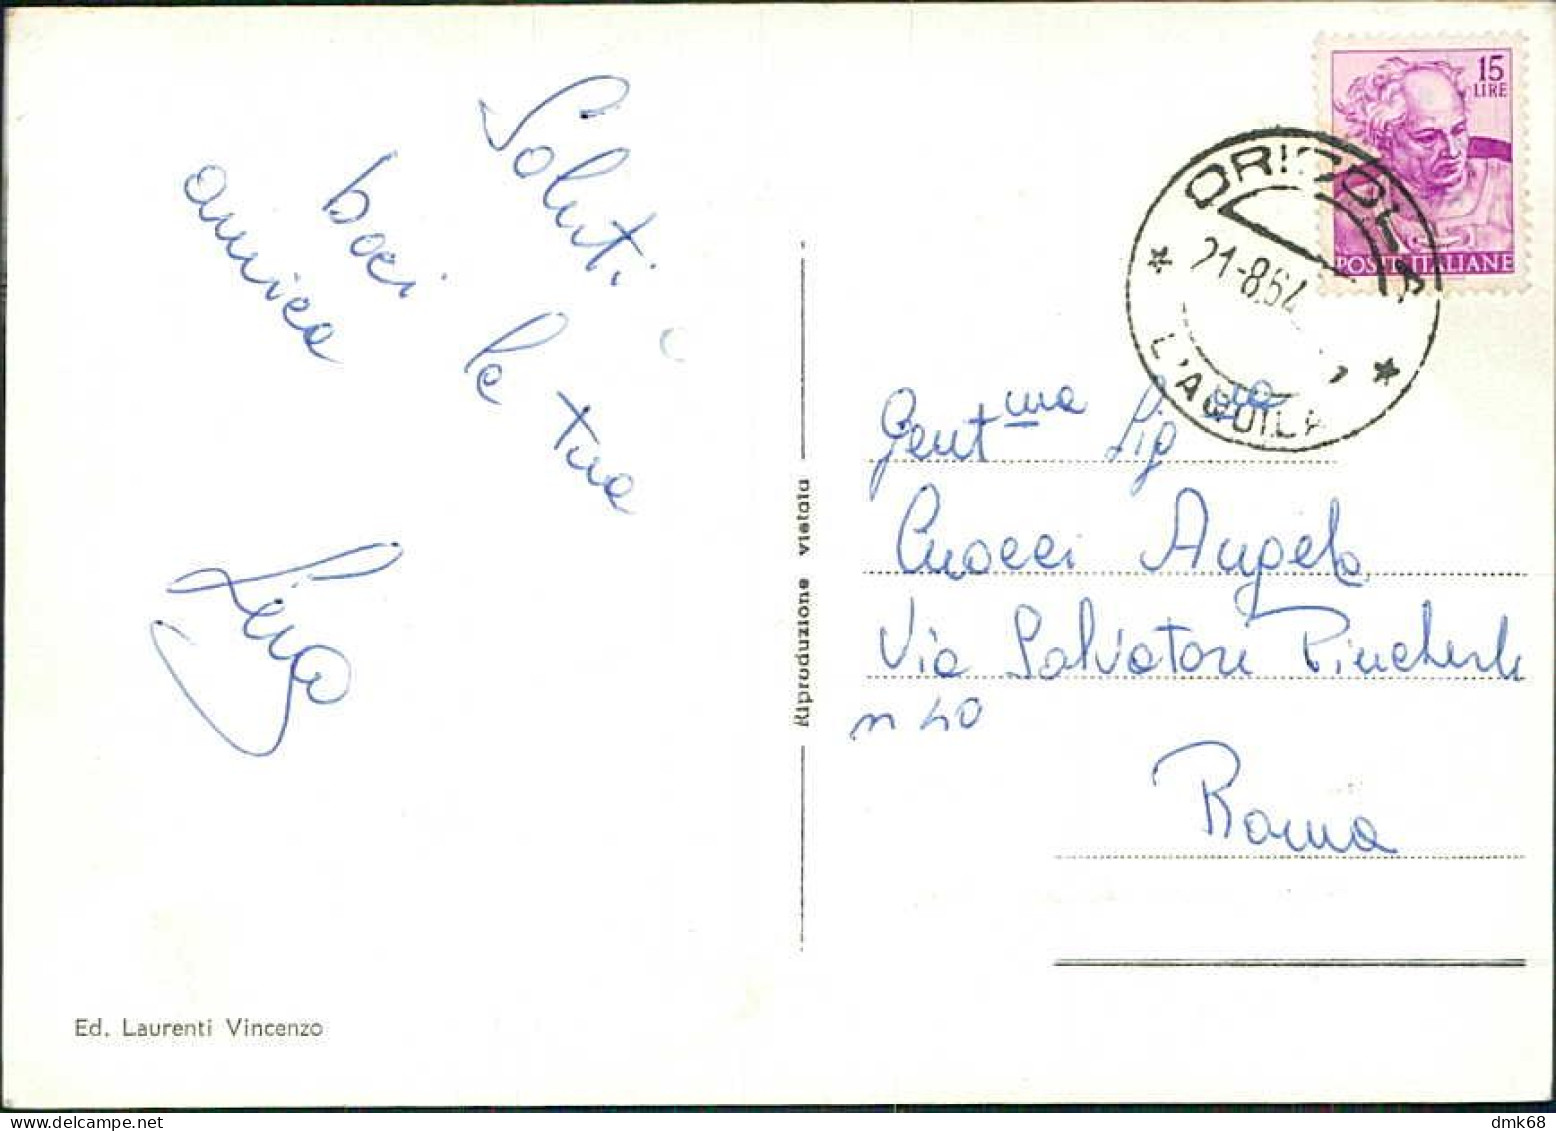 Saluti
baci la tua
amica
Lina
Ed. Laurenti Vincenzo
Riproduzione vietata
15
LIRE
POSTE ITALIANE
21-8.64
L'AQUILA
Gent ma Sig na
Cuocci Angela
Via Salvatore Pincherle
n 40
Roma
dmk68